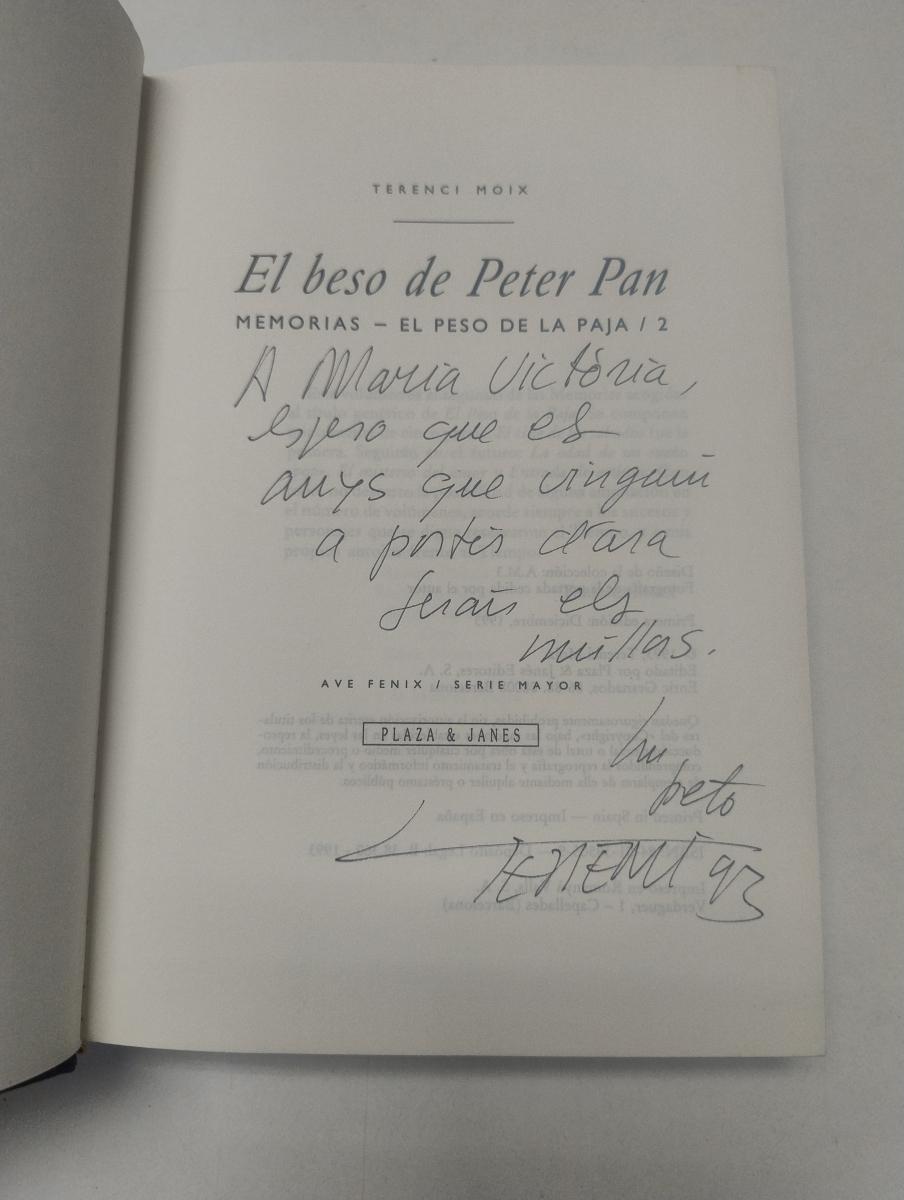 TERENCI MOIX
El beso de Peter Pan
MEMORIAS – EL PESO DE LA PAJA / 2
A Maria Victòria,
espero que els
anys que vinguin
a partir d'ara
seran els
millors.
AVE FENIX / SERIE MAYOR
PLAZA & JANES
Un
petó
TERENCI 93